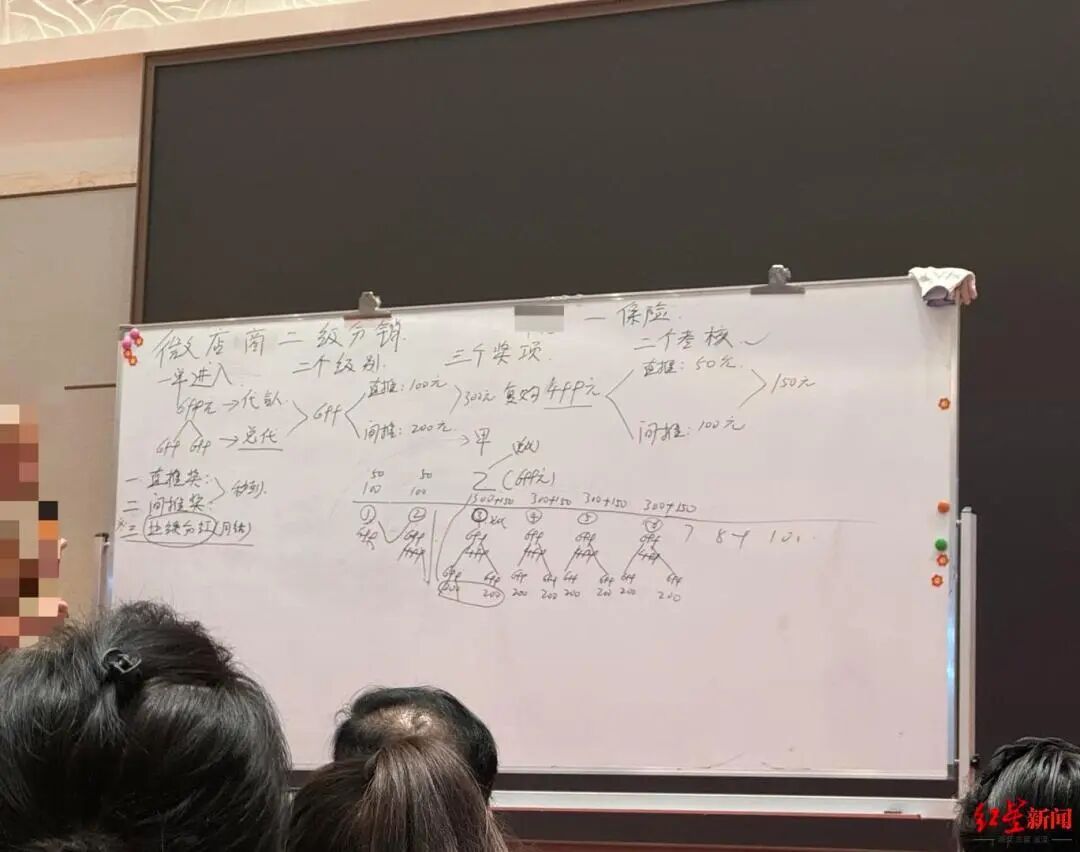 微店商二级分销. 一保险.
一单进入 二个级别. 三个奖项. 二个考核
699元→代理. 699 直推:100元 300元 复购499元 直推:50元 150元
699 699 →总代 间推:200元 →甲 间推:100元
一直推奖: 秒到.
二间推奖:
三 (月结)
50 50 乙(699元)
100 100 300+150 300+150 300+150 300+150
① ② ③ ④ ⑤ ⑥ 7 8
699 699 699 699 699 699
499 499 499 499 499
699 699 699 699 699 699 699 699
200 200 200 200 200 200 200 200
红星新闻